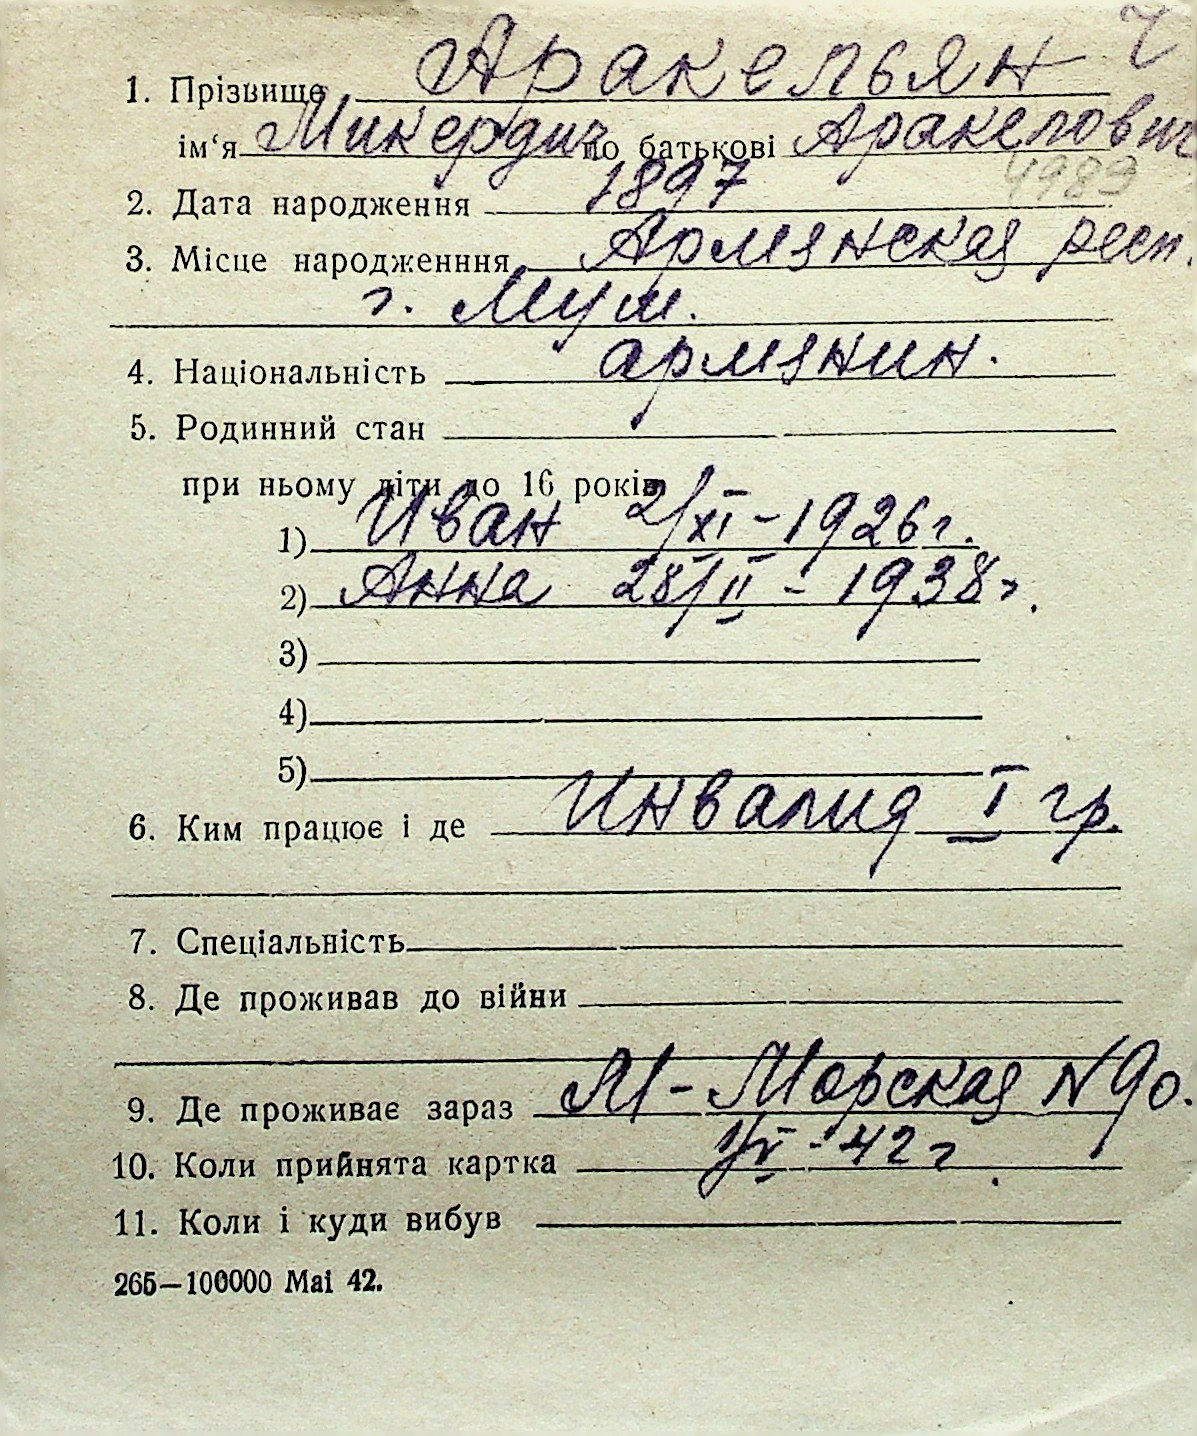 1. Прізвище Аракельян
ім‘я Микердич по батькові Аракелович
4989
2. Дата народження 1897
3. Місце народженння Армянская респ.
г. Муш.
4. Національність армянин.
5. Родинний стан
при ньому діти до 16 років
1) Иван 2/XI-1926г.
2) Анна 28/II-1938г.
3)
4)
5)
6. Ким працює і де Инвалид I гр.
7. Спеціальність
8. Де проживав до війни
9. Де проживає зараз М-Морская N 90.
10. Коли прийнята картка 1/V-42 г.
11. Коли і куди вибув
265—100000 Mai 42.